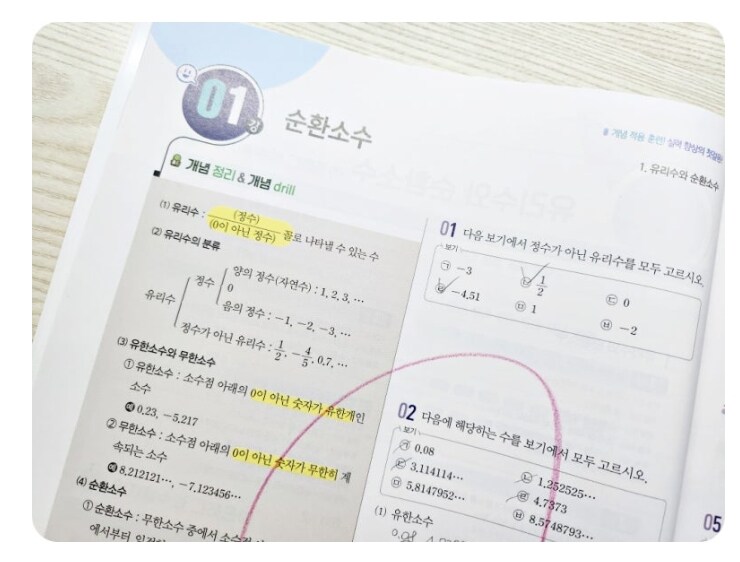 01강 순환소수
개념 정리 & 개념 drill
(1) 유리수 : (정수)/(0이 아닌 정수) 꼴로 나타낼 수 있는 수
(2) 유리수의 분류
유리수
정수
양의 정수(자연수) : 1, 2, 3, …
0
음의 정수 : −1, −2, −3, …
정수가 아닌 유리수 : 1/2, −4/5, 0.7, …
(3) 유한소수와 무한소수
① 유한소수 : 소수점 아래의 0이 아닌 숫자가 유한개인
소수
예 0.23, −5.217
② 무한소수 : 소수점 아래의 0이 아닌 숫자가 무한히 계
속되는 소수
예 8.212121…, −7.123456…
(4) 순환소수
① 순환소수 : 무한소수 중에서 소수점
에서부터
개념 적용 훈련! 실력 향상의 첫걸음
1. 유리수와 순환소수
01 다음 보기에서 정수가 아닌 유리수를 모두 고르시오.
보기
㉠ −3 ㉡ 1/2 ㉢ 0
㉣ −4.51 ㉤ 1 ㉥ −2
02 다음에 해당하는 수를 보기에서 모두 고르시오.
보기
㉠ 0.08 ㉡ 1.252525…
㉢ 3.114114… ㉣ 4.7373
㉤ 5.8147952… ㉥ 8.5748793…
(1) 유한소수
05